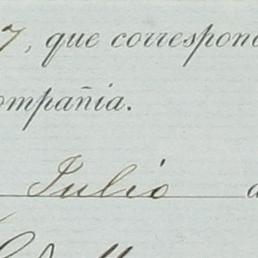 7, que correspond
ompañia.
Julio